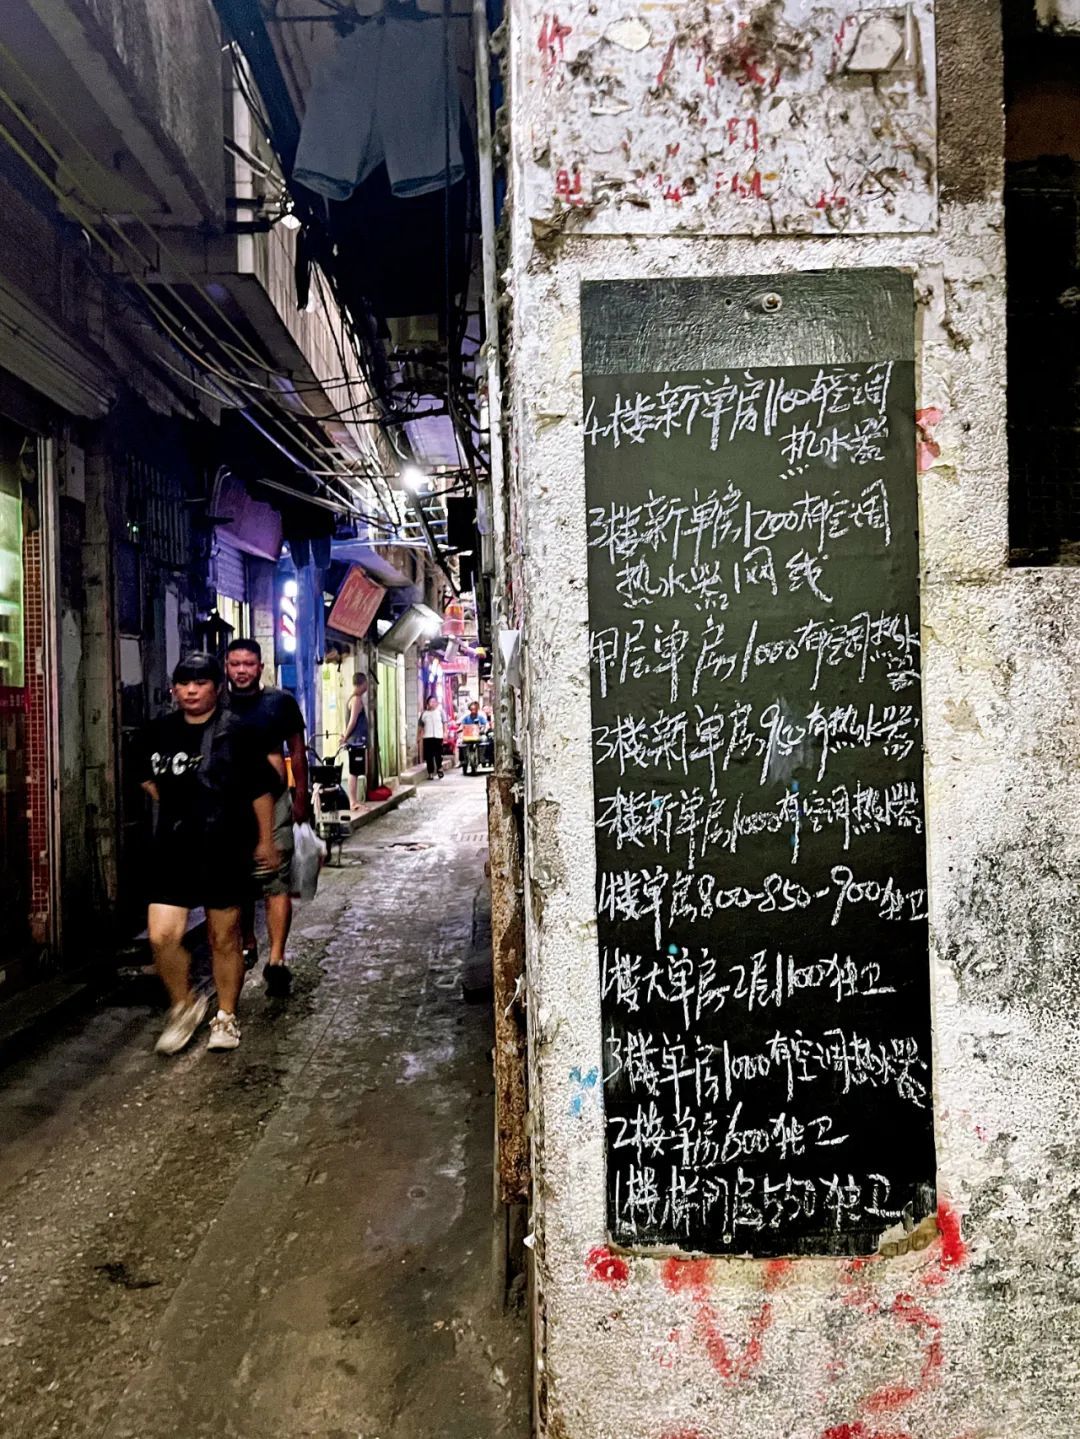 4楼新单房1100有空调
热水器
3楼新单房1200有空调
热水器1网线
甲层单房1000有空调热水器
3楼新单房900有热水器
2楼新单房1000有空调热水器
1楼单房800-850-900独卫
1楼大单房2层1100独卫
3楼单房1000有空调热水器
2楼单房600独卫
1楼梯间房550独卫